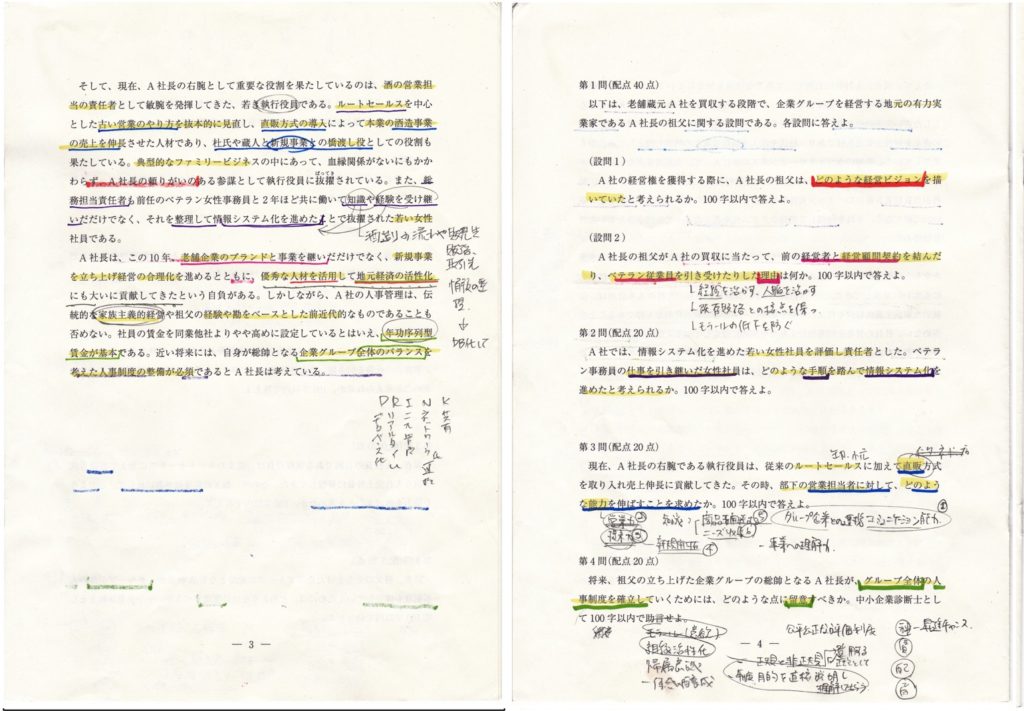 そして、現在、A社長の右腕として重要な役割を果たしているのは、酒の営業担
当の責任者として敏腕を発揮してきた、若き執行役員である。ルートセールスを中心
とした古い営業のやり方を抜本的に見直し、直販方式の導入によって本業の酒造事業
の売上を伸長させた人材であり、杜氏や蔵人と新規事業との橋渡し役としての役割も
果たしている。典型的なファミリービジネスの中にあって、血縁関係がないにもかか
ばってき
わらず、A社長の頼りがいのある参謀として執行役員に抜擢されている。また、総
務担当責任者も前任のベテラン女性事務員と2年ほど共に働いて知識や経験を受け継
いだだけでなく、それを整理して情報システム化を進めたことで抜擢された若い女性
社員である。
A社長は、この10年、老舗企業のブランドと事業を継いだだけでなく、新規事業
を立ち上げ経営の合理化を進めるとともに、優秀な人材を活用して地元経済の活性化
にも大いに貢献してきたという自負がある。しかしながら、A社の人事管理は、伝
統的な家族主義的経営や祖父の経験や勘をベースとした前近代的なものであることも
否めない。社員の賃金を同業他社よりやや高めに設定しているとはいえ、年功序列型
賃金が基本である。近い将来には、自身が総帥となる企業グループ全体のバランスを
考えた人事制度の整備が必須であるとA社長は考えている。
K 共有
N ネットワーク
I 一元管理
R リアルタイム
D データベース化
— 3 —
第1問(配点40点)
以下は、老舗蔵元A社を買収する段階で、企業グループを経営する地元の有力実
業家であるA社長の祖父に関する設問である。各設問に答えよ。
(設問1)
A社の経営権を獲得する際に、A社長の祖父は、どのような経営ビジョンを描
いていたと考えられるか。100字以内で答えよ。
(設問2)
A社長の祖父がA社の買収に当たって、前の経営者と経営顧問契約を結んだ
り、ベテラン従業員を引き受けたりした理由は何か。100字以内で答えよ。
経験を活かす、人脈を活かす
既存販路との接点を保つ
モラールの低下を防ぐ
第2問(配点20点)
A社では、情報システム化を進めた若い女性社員を評価し責任者とした。ベテラ
ン事務員の仕事を引き継いだ女性社員は、どのような手順を踏んで情報システム化を
進めたと考えられるか。100字以内で答えよ。
第3問(配点20点)
現在、A社長の右腕である執行役員は、従来のルートセールスに加えて直販方式
を取り入れ売上伸長に貢献してきた。その時、部下の営業担当者に対して、どのよう
な能力を伸ばすことを求めたか。100字以内で答えよ。
営業力③
提案力③
新規開拓④
ニーズ収集
グループ企業との連携 コミュニケーション能力
事業への理解力
第4問(配点20点)
将来、祖父の立ち上げた企業グループの総帥となるA社長が、グループ全体の人
事制度を確立していくためには、どのような点に留意すべきか。中小企業診断士とし
て100字以内で助言せよ。
公平公正な評価制度
組織活性化
帰属意識
— 4 —